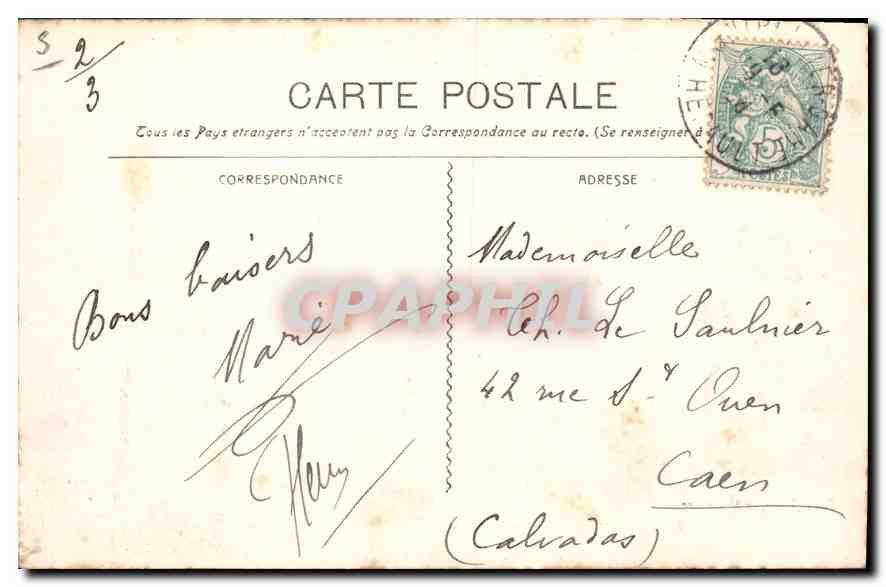 S 2/3
CARTE POSTALE
Tous les Pays etrangers n'acceptent pas la Correspondance au recto. (Se renseigner à
CORRESPONDANCE
ADRESSE
HERAULT
5
POSTES
Bons baisers
Marie
Henry
Mademoiselle
Th. Le Saulnier
42 rue St Ouen
Caen
(Calvados)
CPAPHIL